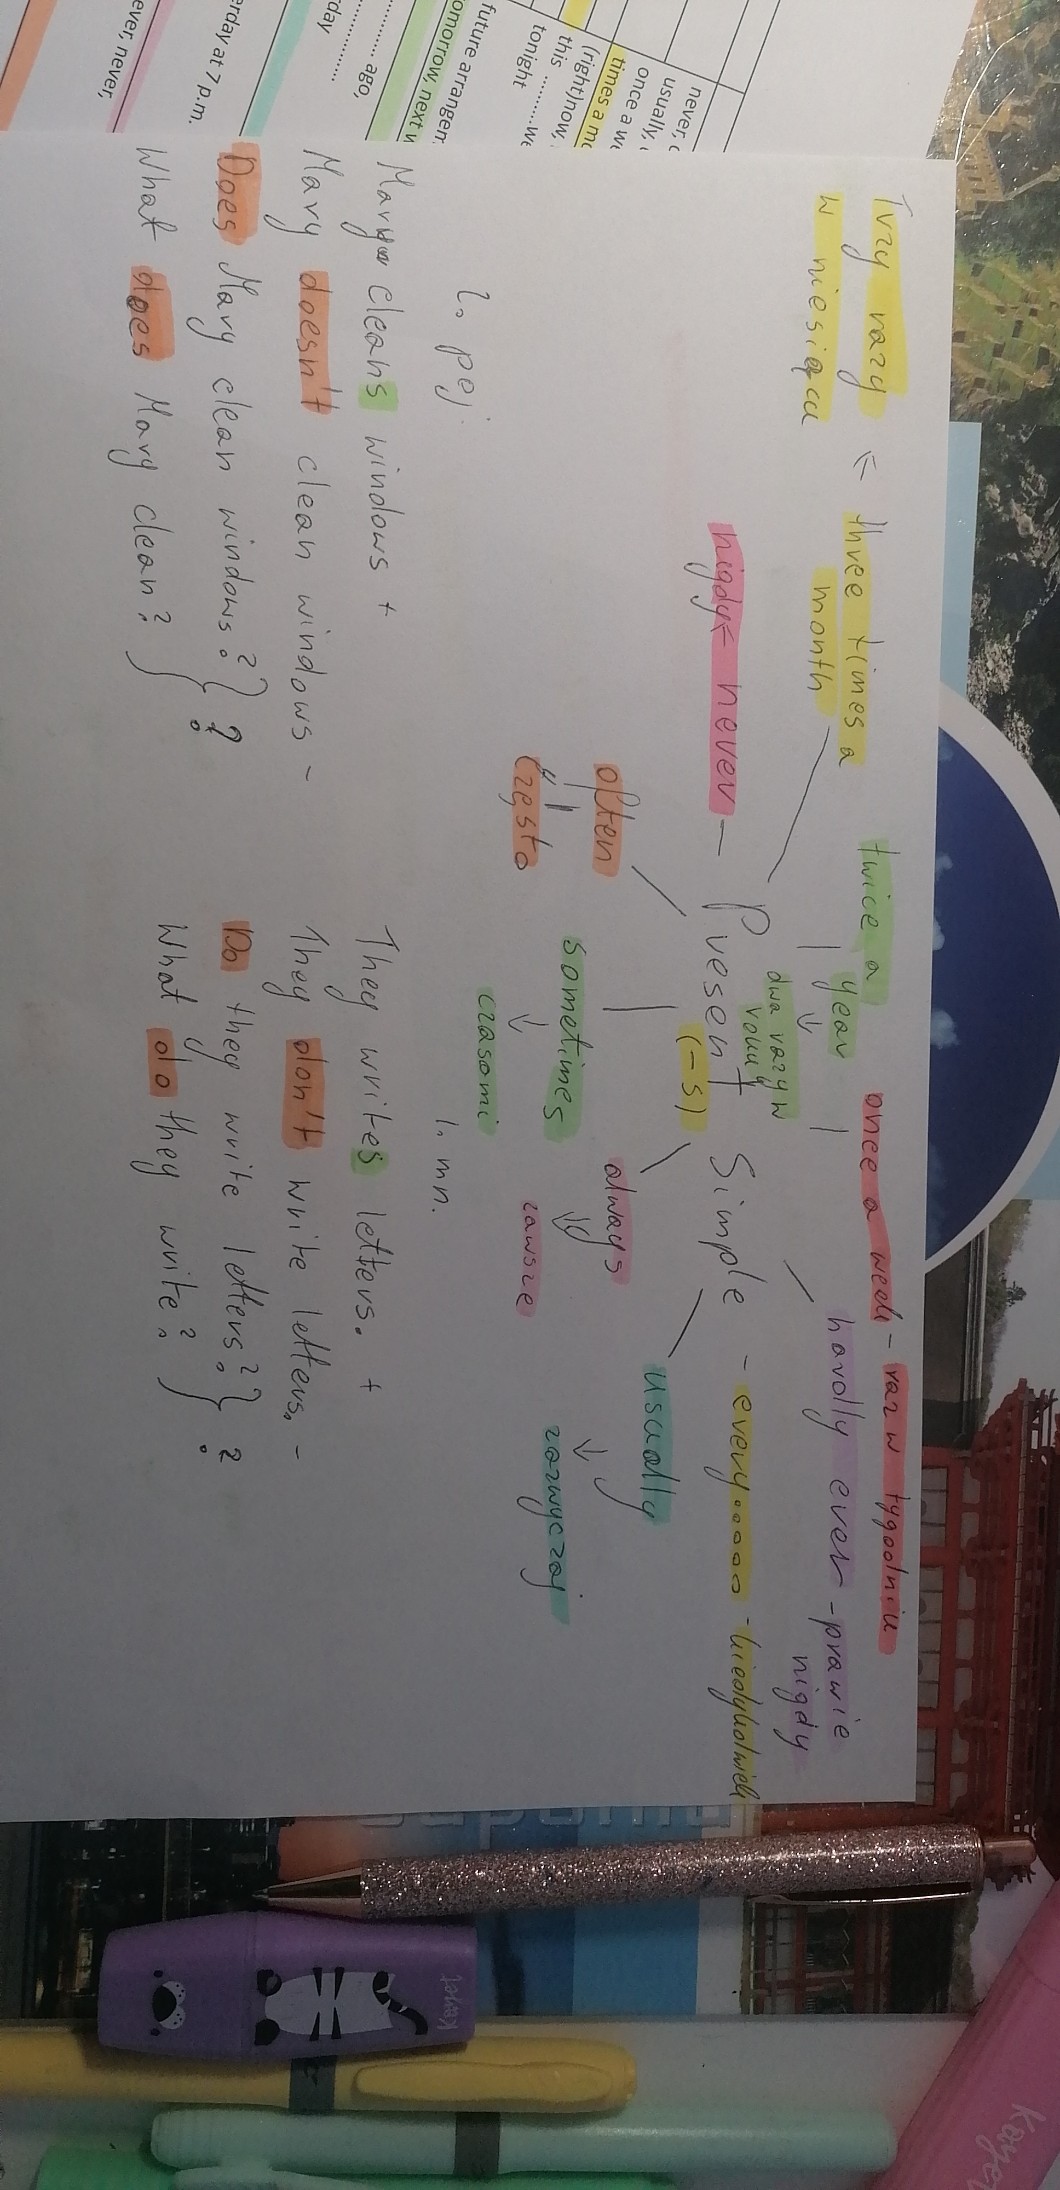 never,
usually,
once a we
times a mo
(right)now,
this ............we
tonight
future arranger
omorrow, next w
............ ago,
rday
............
erday at 7 p.m.
ever, never,
Trzy razy <= three times a
w miesiącu month
twice a year
↓
dwa razy w
roku
once a week - raz w tygodniu
hardly ever - prawie
nigdy
nigdy = never - Present Simple - every..... - kiedykolwiek
(-s)
often
=
często
sometimes
↓
czasami
always
⇓
zawsze
usually
↓
zazwyczaj
l. poj.
Mary cleans windows +
Mary doesn't clean windows -
Does Mary clean windows? } ?
What does Mary clean? }
l. mn.
They writes letters. +
They don't write letters. -
Do they write letters? } ?
What do they write? }
Keyet
Kayet